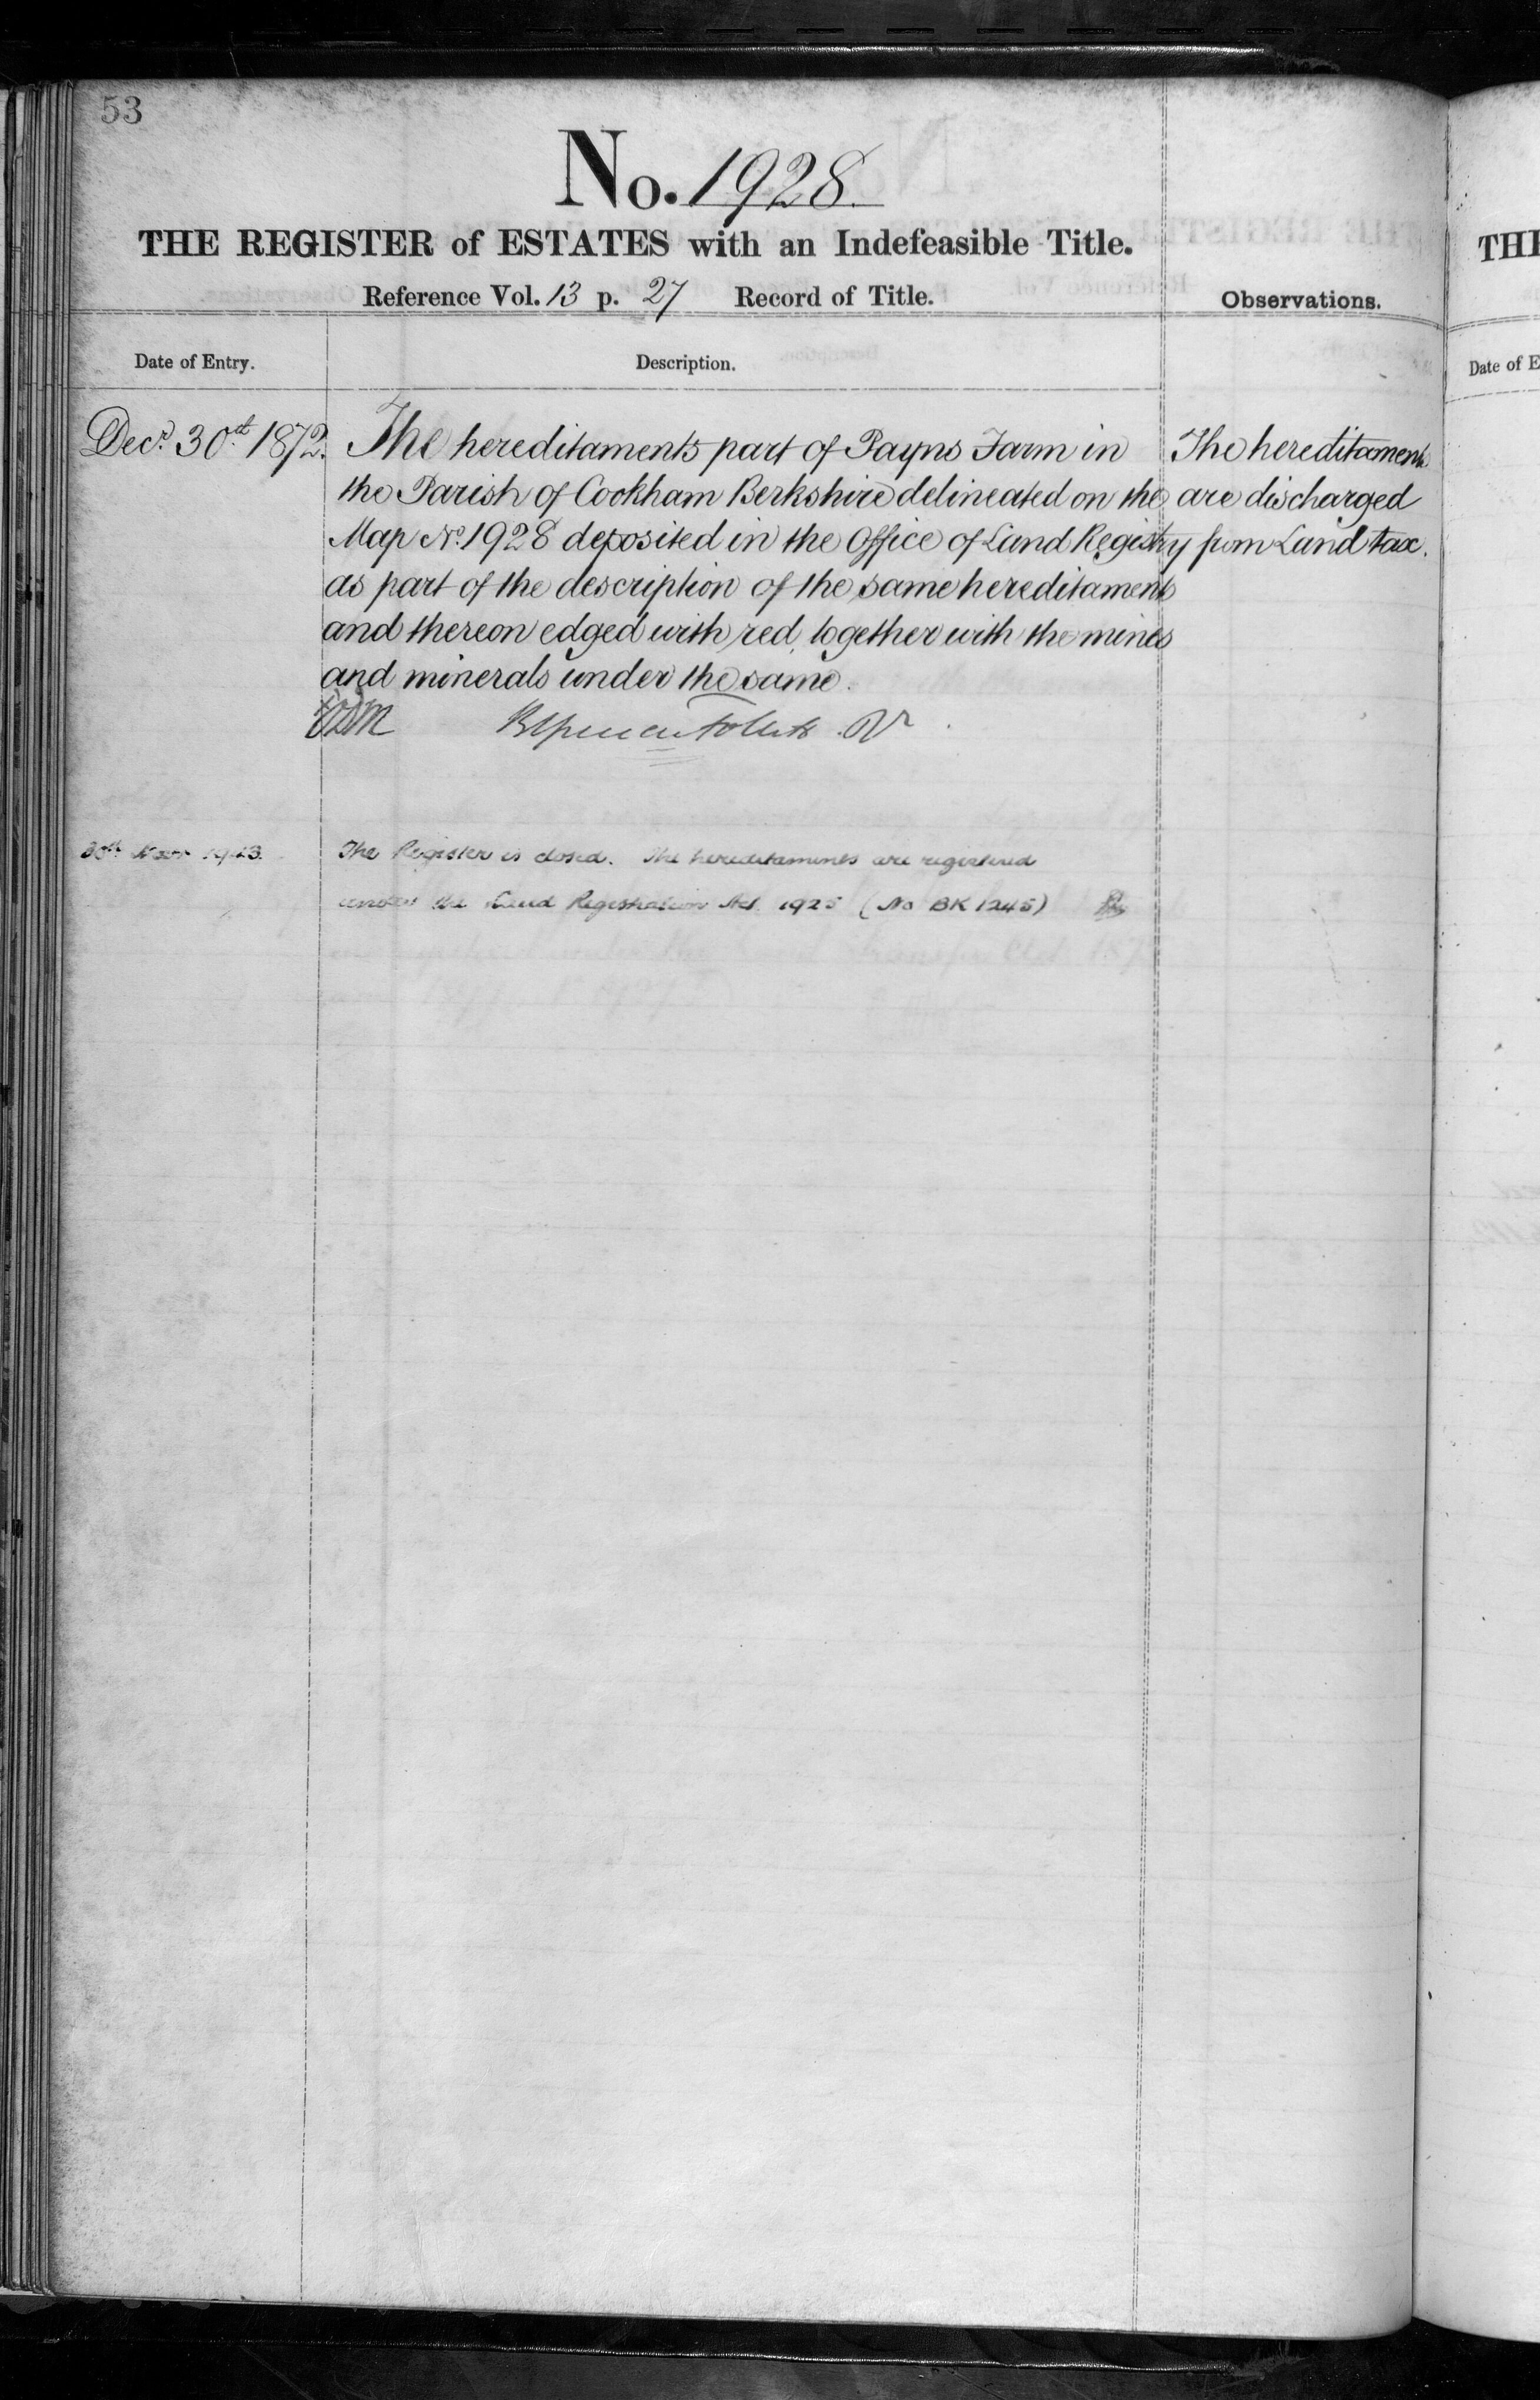 53
No. 1928.
THE REGISTER of ESTATES with an Indefeasible Title.
Reference Vol. 13 p. 27 Record of Title.
Observations.
Date of Entry.
Description.
Decr. 30th 1872.
The hereditaments part of Payns Farm in
the Parish of Cookham Berkshire delineated on the
Map No. 1928 deposited in the Office of Land Registry
as part of the description of the same hereditaments
and thereon edged with red, together with the mines
and minerals under the same.
The hereditaments
are discharged
from Land tax.
30th 1943.
The Register is closed. The hereditaments are registered
under the Land Registration Act 1925 (No BK 1245)
THE
Date of E